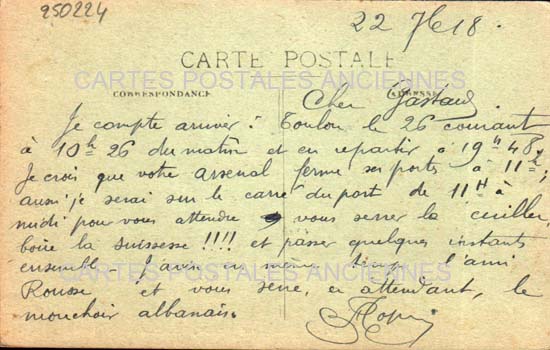 250224
22 7<sup>bre</sup> 18.
CARTE POSTALE
CARTES POSTALES ANCIENNES
CORRESPONDANCE
ADRESSE
Cher Gastaud,
Je compte arriver à Toulon le 26 courant
à 10h 26 du matin et en repartir à 19h 48.
Je crois que votre arsenal ferme ses portes à 11h;
aussi je serai sur le carré du port de 11H à
midi pour vous attendre vous serrer la cuiller,
boire la suissesse !!!! et passer quelques instants
ensemble. J'avise en même temps l'ami
CARTES POSTALES ANCIENNES
Rousse et vous serre, en attendant, le
mouchoir albanais.